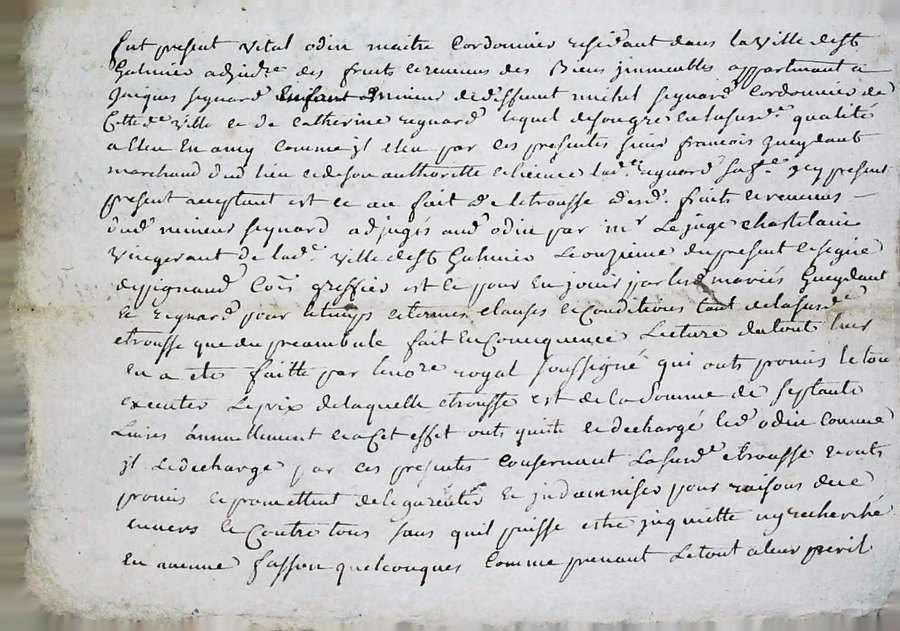 fut present vital odin maitre Cordonnier residant dans la ville de St
Galmier adjudre des fruits et revenus des Biens immeubles appartenant a
Jacques seynard Enfant mineur de deffunt michel seynard Cordonnier de
Cette de ville et de Catherine reynard lequel de son gre en la susde qualité
a Eleu En amy Comme jl eleu par ces presentes sieur francois gueydant
marchand dud lieu et de son authoritte et licence lade reynard sa fe jcy present
present acceptant est ce au fait de letrousse desd. fruits et revenus
dud. mineur seynard adjugés aud. odin par mr Le juge Chastelain
Vingerant de lade ville de St Galmier Le onzieme du present et signé
depignaud Cois greffier est ce pour En jouir par lesd mariés Gueydant
et reynard pour letemps et termes clauses et Conditions tant de la susde
etrousse que du preambule fait En Consequence Lecture du tout leur
En a eté faitte par le nore royal soussigné qui ont promis le tout
executer Le prix de laquelle etrousse est de la somme de septante
Livres annuellement et a Cet effet ont quitté et dechargé led odin Comme
jl Le decharge par ces presentes Consernant La susde etrousse et ont
promis et promettent de le garentir et jndamniser pour raisons de ce
envers et Contre tous sans quil puisse estre jnquietté ny recherché
En aucune fasson quelconques Comme prenant Le tout a leur peril